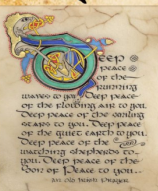 Deep
peace
of the
running
waves to you. Deep peace
of the flowing air to you.
Deep peace of the smiling
stars to you. Deep peace
of the quiet earth to you.
Deep peace of the
watching shepherds to
you. Deep peace of the
Son of Peace to you.